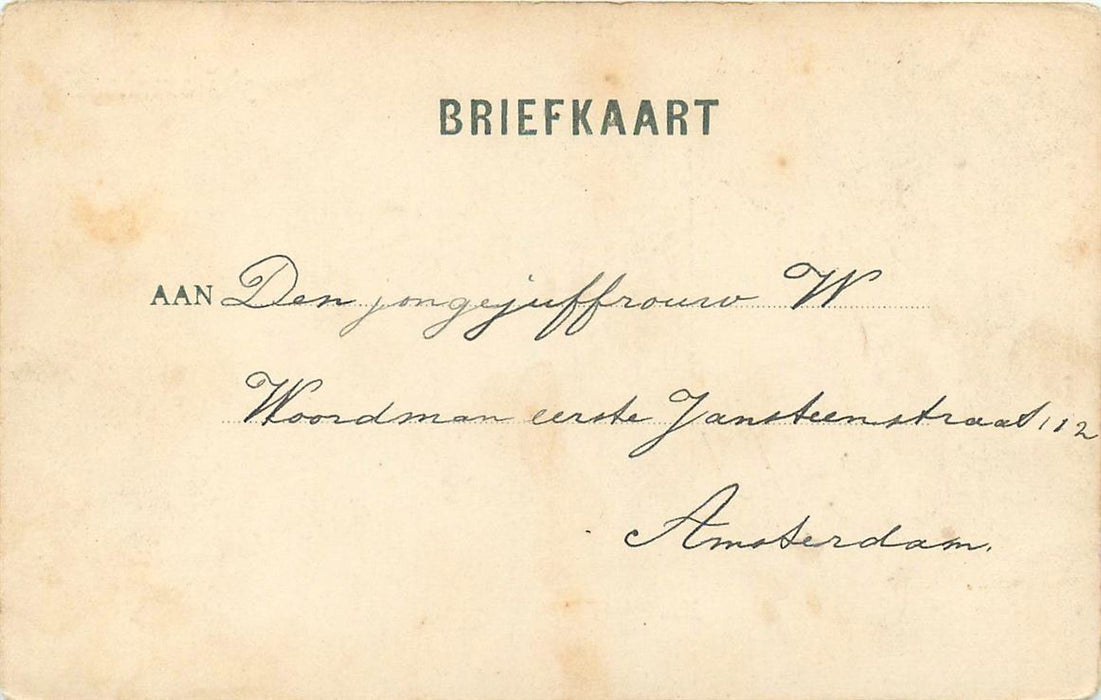 BRIEFKAART
AAN Den jongejuffrouw W
Woordman eerste Jansteenstraat 112
Amsterdam.